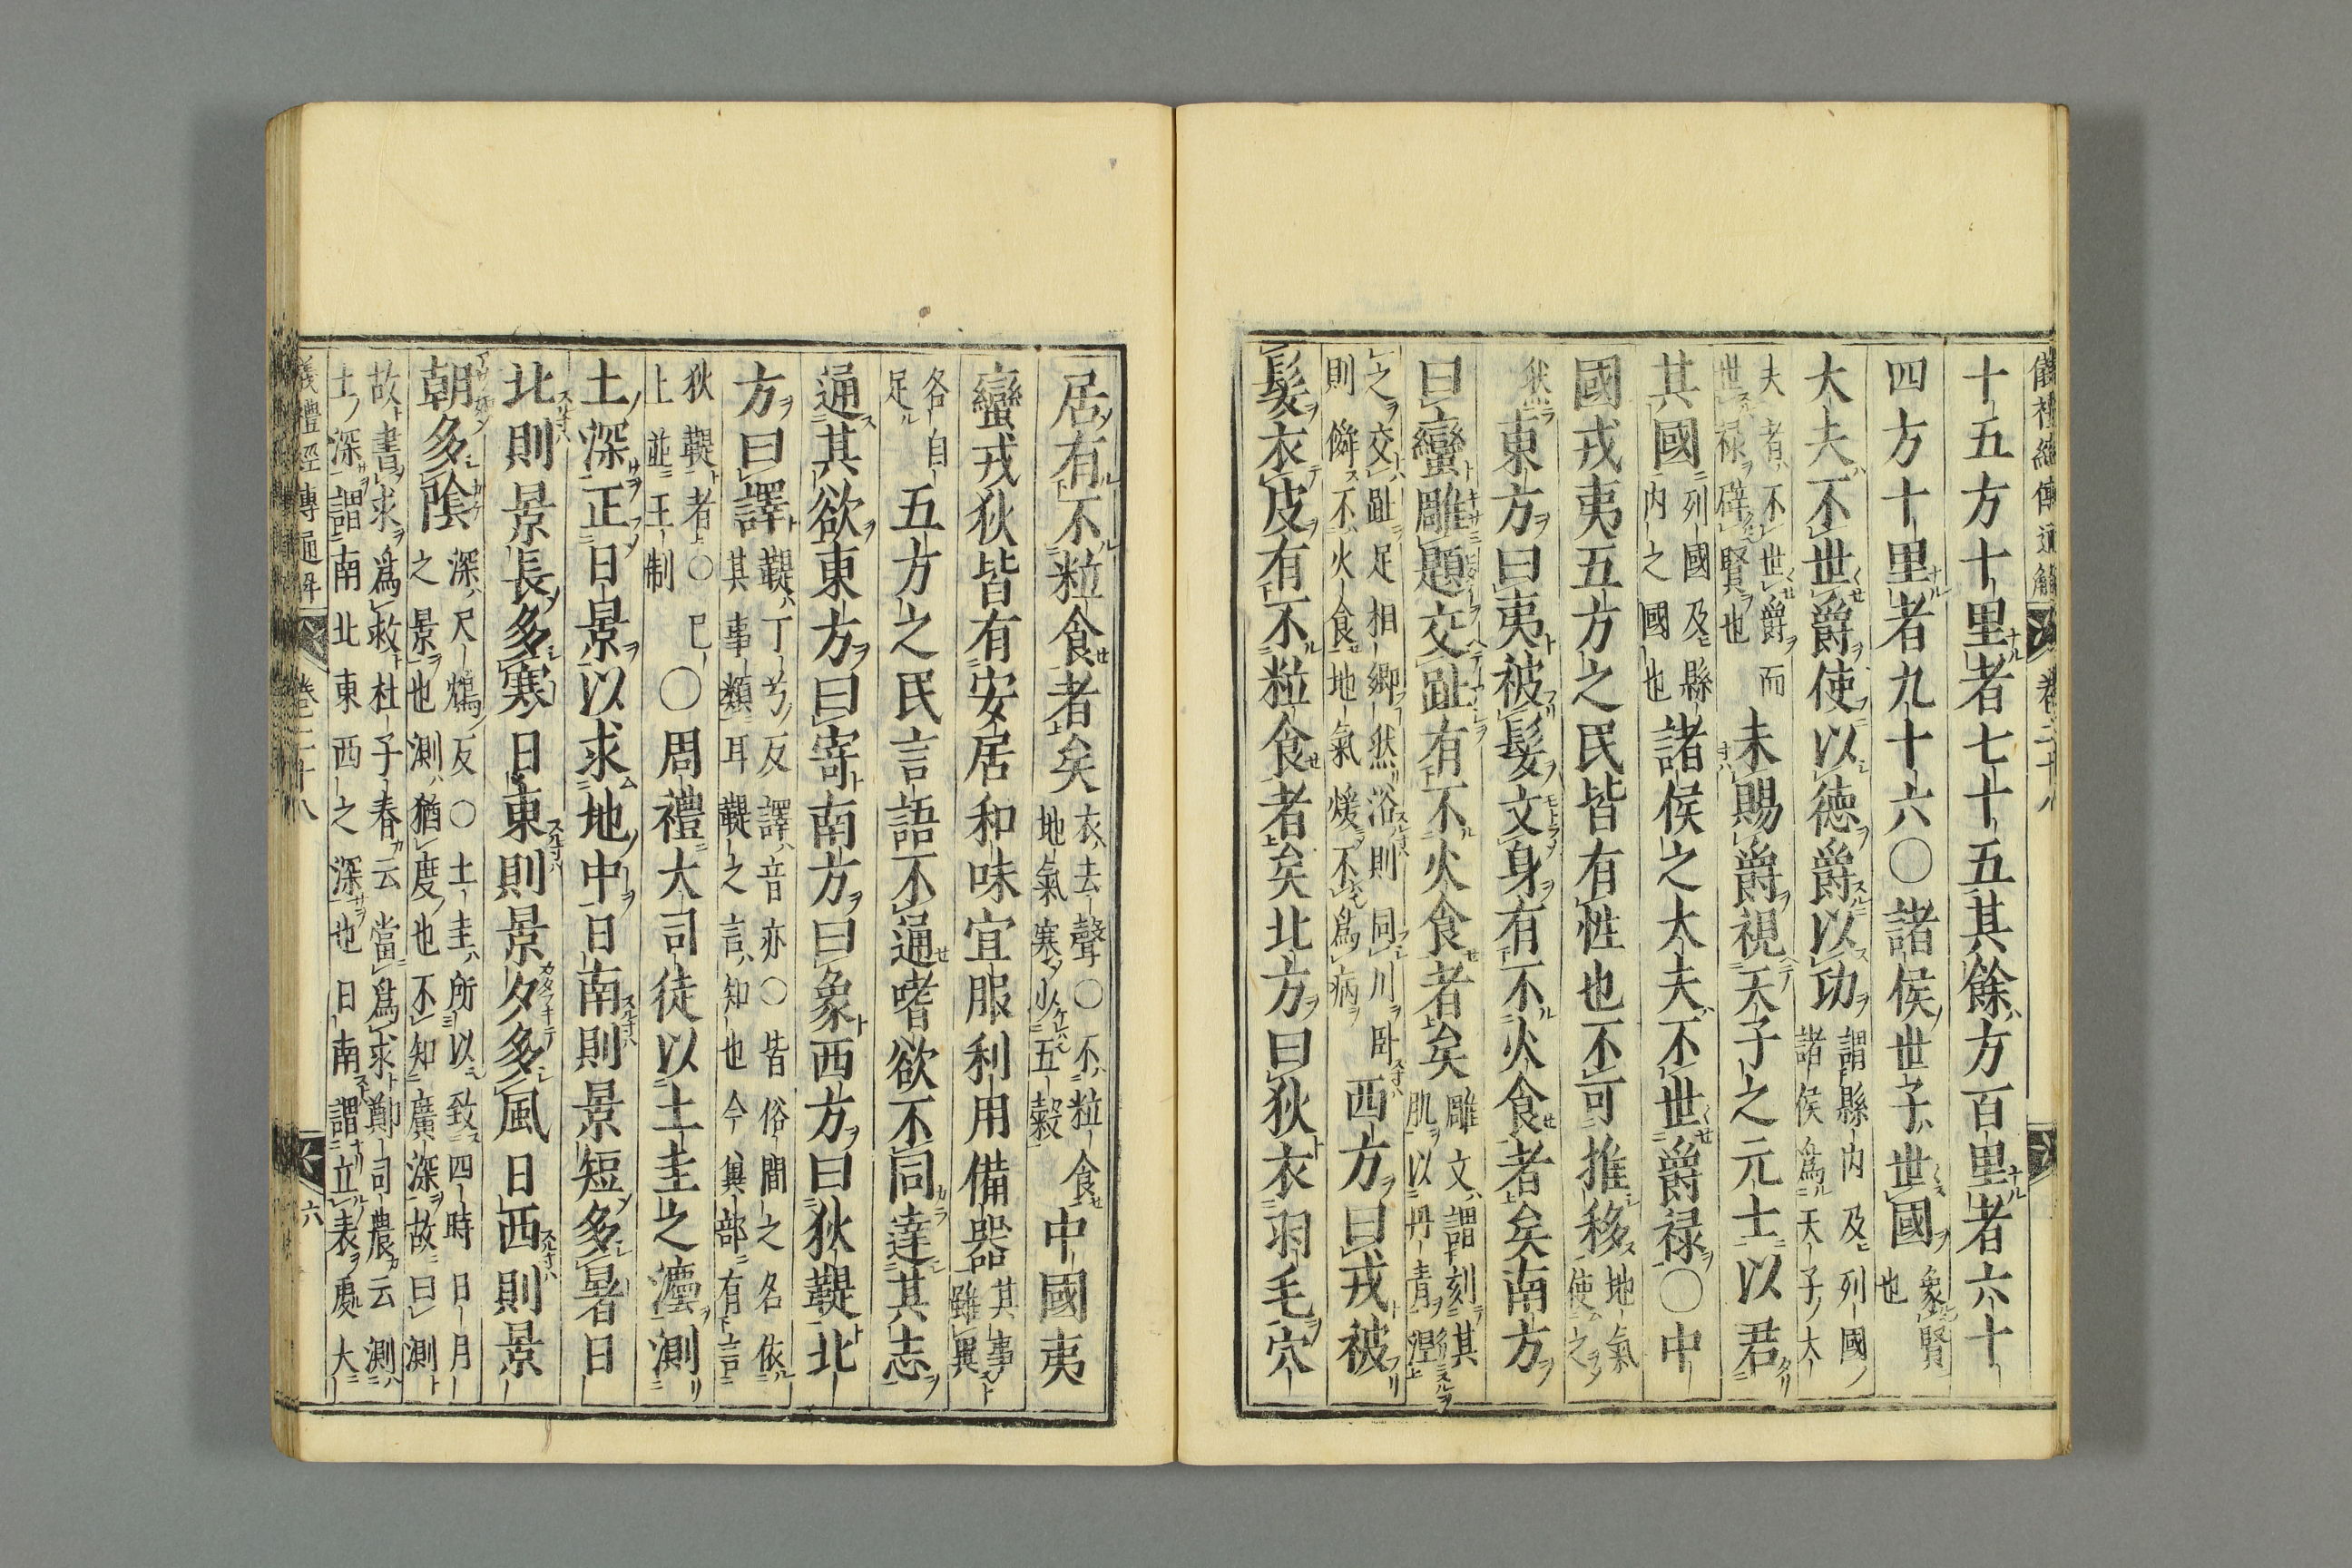 儀禮經傳通解 卷二十八
十五方十里者七十五其餘方百里者六十
四方十里者九十六〇諸侯世子世國象賢也
大夫不世爵使以德爵以功謂縣内及列國諸侯爲天子大
夫者不世爵而世祿辟賢也未賜爵視天子之元士以君
其國列國及縣内之國也諸侯之大夫不世爵祿〇中
國戎夷五方之民皆有性也不可推移地氣使之
然東方曰夷被髮文身有不火食者矣南方
曰蠻雕題交趾有不火食者矣雕文謂刻其肌以丹青湼
之交趾足相鄉然浴則同川卧則僢不火食地氣煖不爲病西方曰戎被
髮衣皮有不粒食者矣北方曰狄衣羽毛穴
居有不粒食者矣衣去聲〇不粒食地氣寒少五穀中國夷
蠻戎狄皆有安居和味宜服利用備器其事雖異
各自足五方之民言語不通嗜欲不同達其志
通其欲東方曰寄南方曰象西方曰狄鞮北
方曰譯鞮丁兮反譯音亦〇皆俗間之名依其事類耳鞮之言知也今冀部有言
狄鞮者〇已上並王制〇周禮大司徒以土圭之灋測
土深正日景以求地中日南則景短多暑日
北則景長多寒日東則景夕多風日西則景
朝多陰深尺鴆反〇土圭所以致四時日月之景也測猶度也不知廣深故曰測
故書求爲救杜子春云當爲求鄭司農云測土深謂南北東西之深也日南謂立表處大
儀禮經傳通解 卷二十八 六